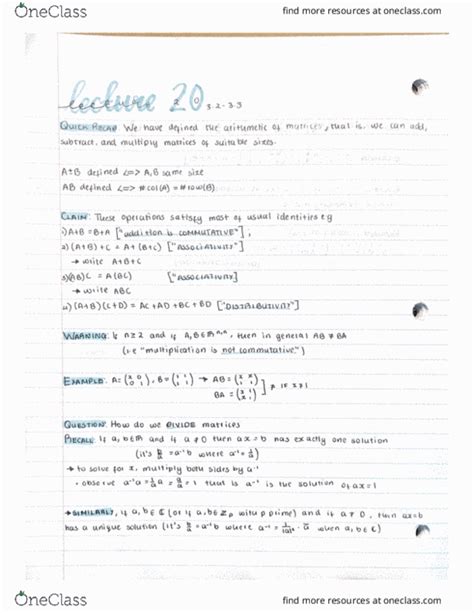 OneClass
find more resources at oneclass.com
lecture 20
lecture 20 3.2-3.3
QUICK RECAP: We have defined the arithmetic of matrices, that is, we can add,
subtract, and multiply matrices of suitable sizes.
A±B defined <=> A,B same size
AB defined <=> #col(A) = #row(B).
CLAIM: These operations satisfy most of usual identities eg
1) A+B = B+A ["addition is COMMUTATIVE"],
2) (A+B)+C = A+(B+C) ["ASSOCIATIVITY"]
→ write A+B+C
3) (AB)C = A(BC) ["ASSOCIATIVITY"]
→ write ABC
4) (A+B)(C+D) = AC+AD+BC+BD ["DISTRIBUTIVITY"]
WARNING: If n≥2 and if A,B∈ then in general AB ≠ BA
(i.e "multiplication is not commutative")
EXAMPLE: A= , B= → AB=
BA =
QUESTION: How do we DIVIDE matrices
RECALL: If a, b∈ and if a ≠ 0 then ax = b has exactly one solution
(it's b/a = a⁻¹b where a⁻¹ = 1/a)
→ to solve for x, multiply both sides by a⁻¹
• observe a⁻¹a = 1/a a = a/a = 1 that is a⁻¹ is the solution of ax=1
→ SIMILARLY, if a, b∈ℂ (or if a, b∈ℤp with p prime) and if a ≠ 0, then ax=b
has a unique solution (it's b/a = a⁻¹b where a⁻¹ = when a, b∈ℂ)
OneClass
find more resources at oneclass.com